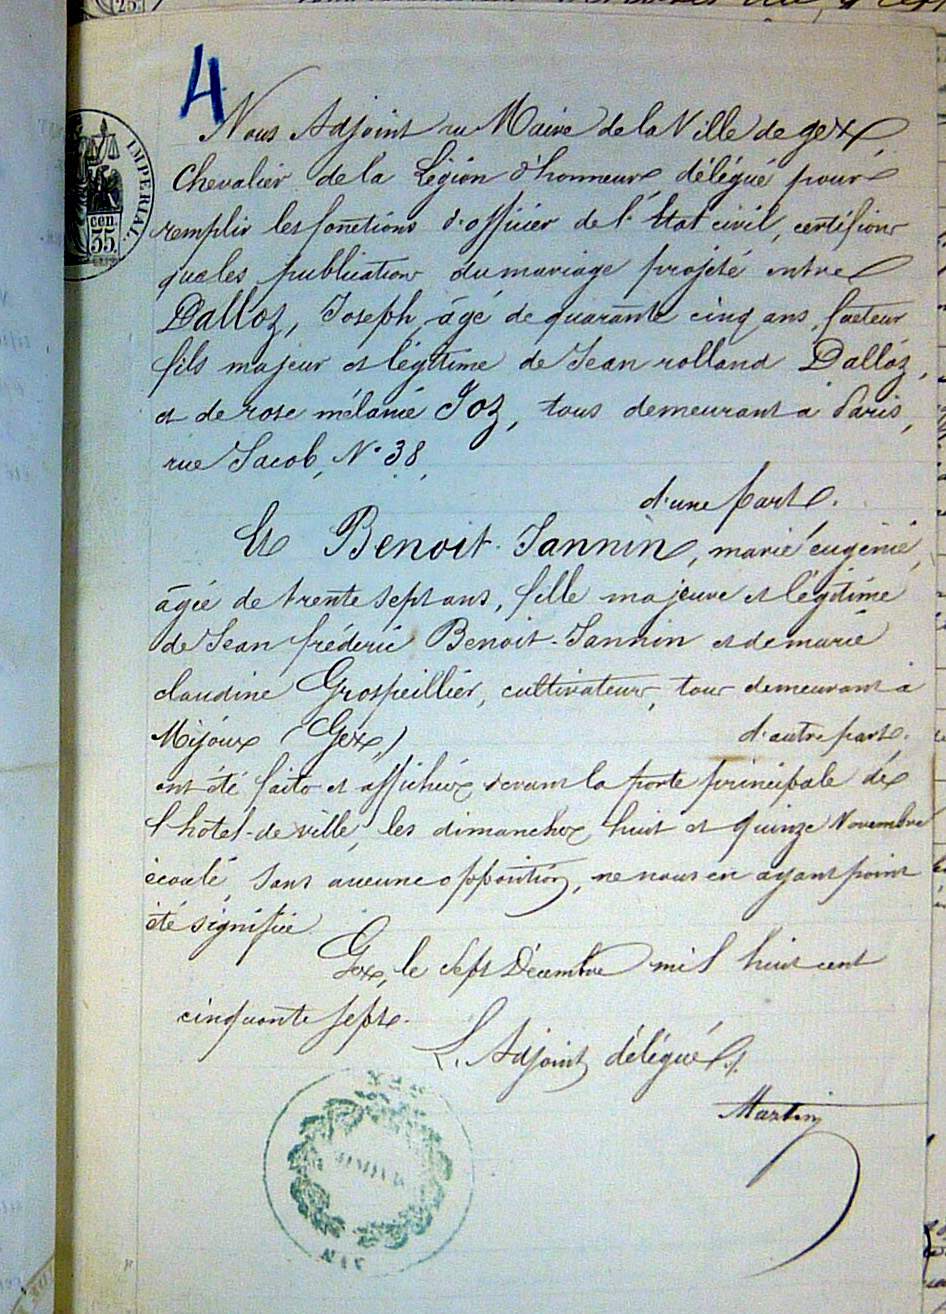 25.
4
Nous Adjoint au Maire de la Ville de gex,
Chevalier de la Légion d'honneur, délégué pour
remplir les fonctions d'officier de l'État civil, certifions
que les publications du mariage projeté entre
Dalloz, Joseph, âgé de quarante cinq ans, facteur
fils majeur et légitime de Jean rolland Dalloz,
et de rose mélanie Joz, tous demeurant à Paris,
rue Jacob, N° 38,
d'une part.
Et Benoit-Jannin, marie eugénie,
âgée de trente sept ans, fille majeure et légitime
de Jean frédéric Benoit-Jannin et de marie
claudine Grospeillier, cultivateurs, tous demeurant à
Mijoux (Gex,) d'autre part.
ont été faites et affichées devant la porte principale de
l'hôtel-de ville, les dimanches huit et quinze Novembre
écoulé sans aucune opposition, ne nous en ayant point
été signifié.
Gex, le Sept Décembre mil huit cent
cinquante sept.
L'Adjoint délégué,
Martin
IMPERIAL.
cen.
35.
MAIRIE